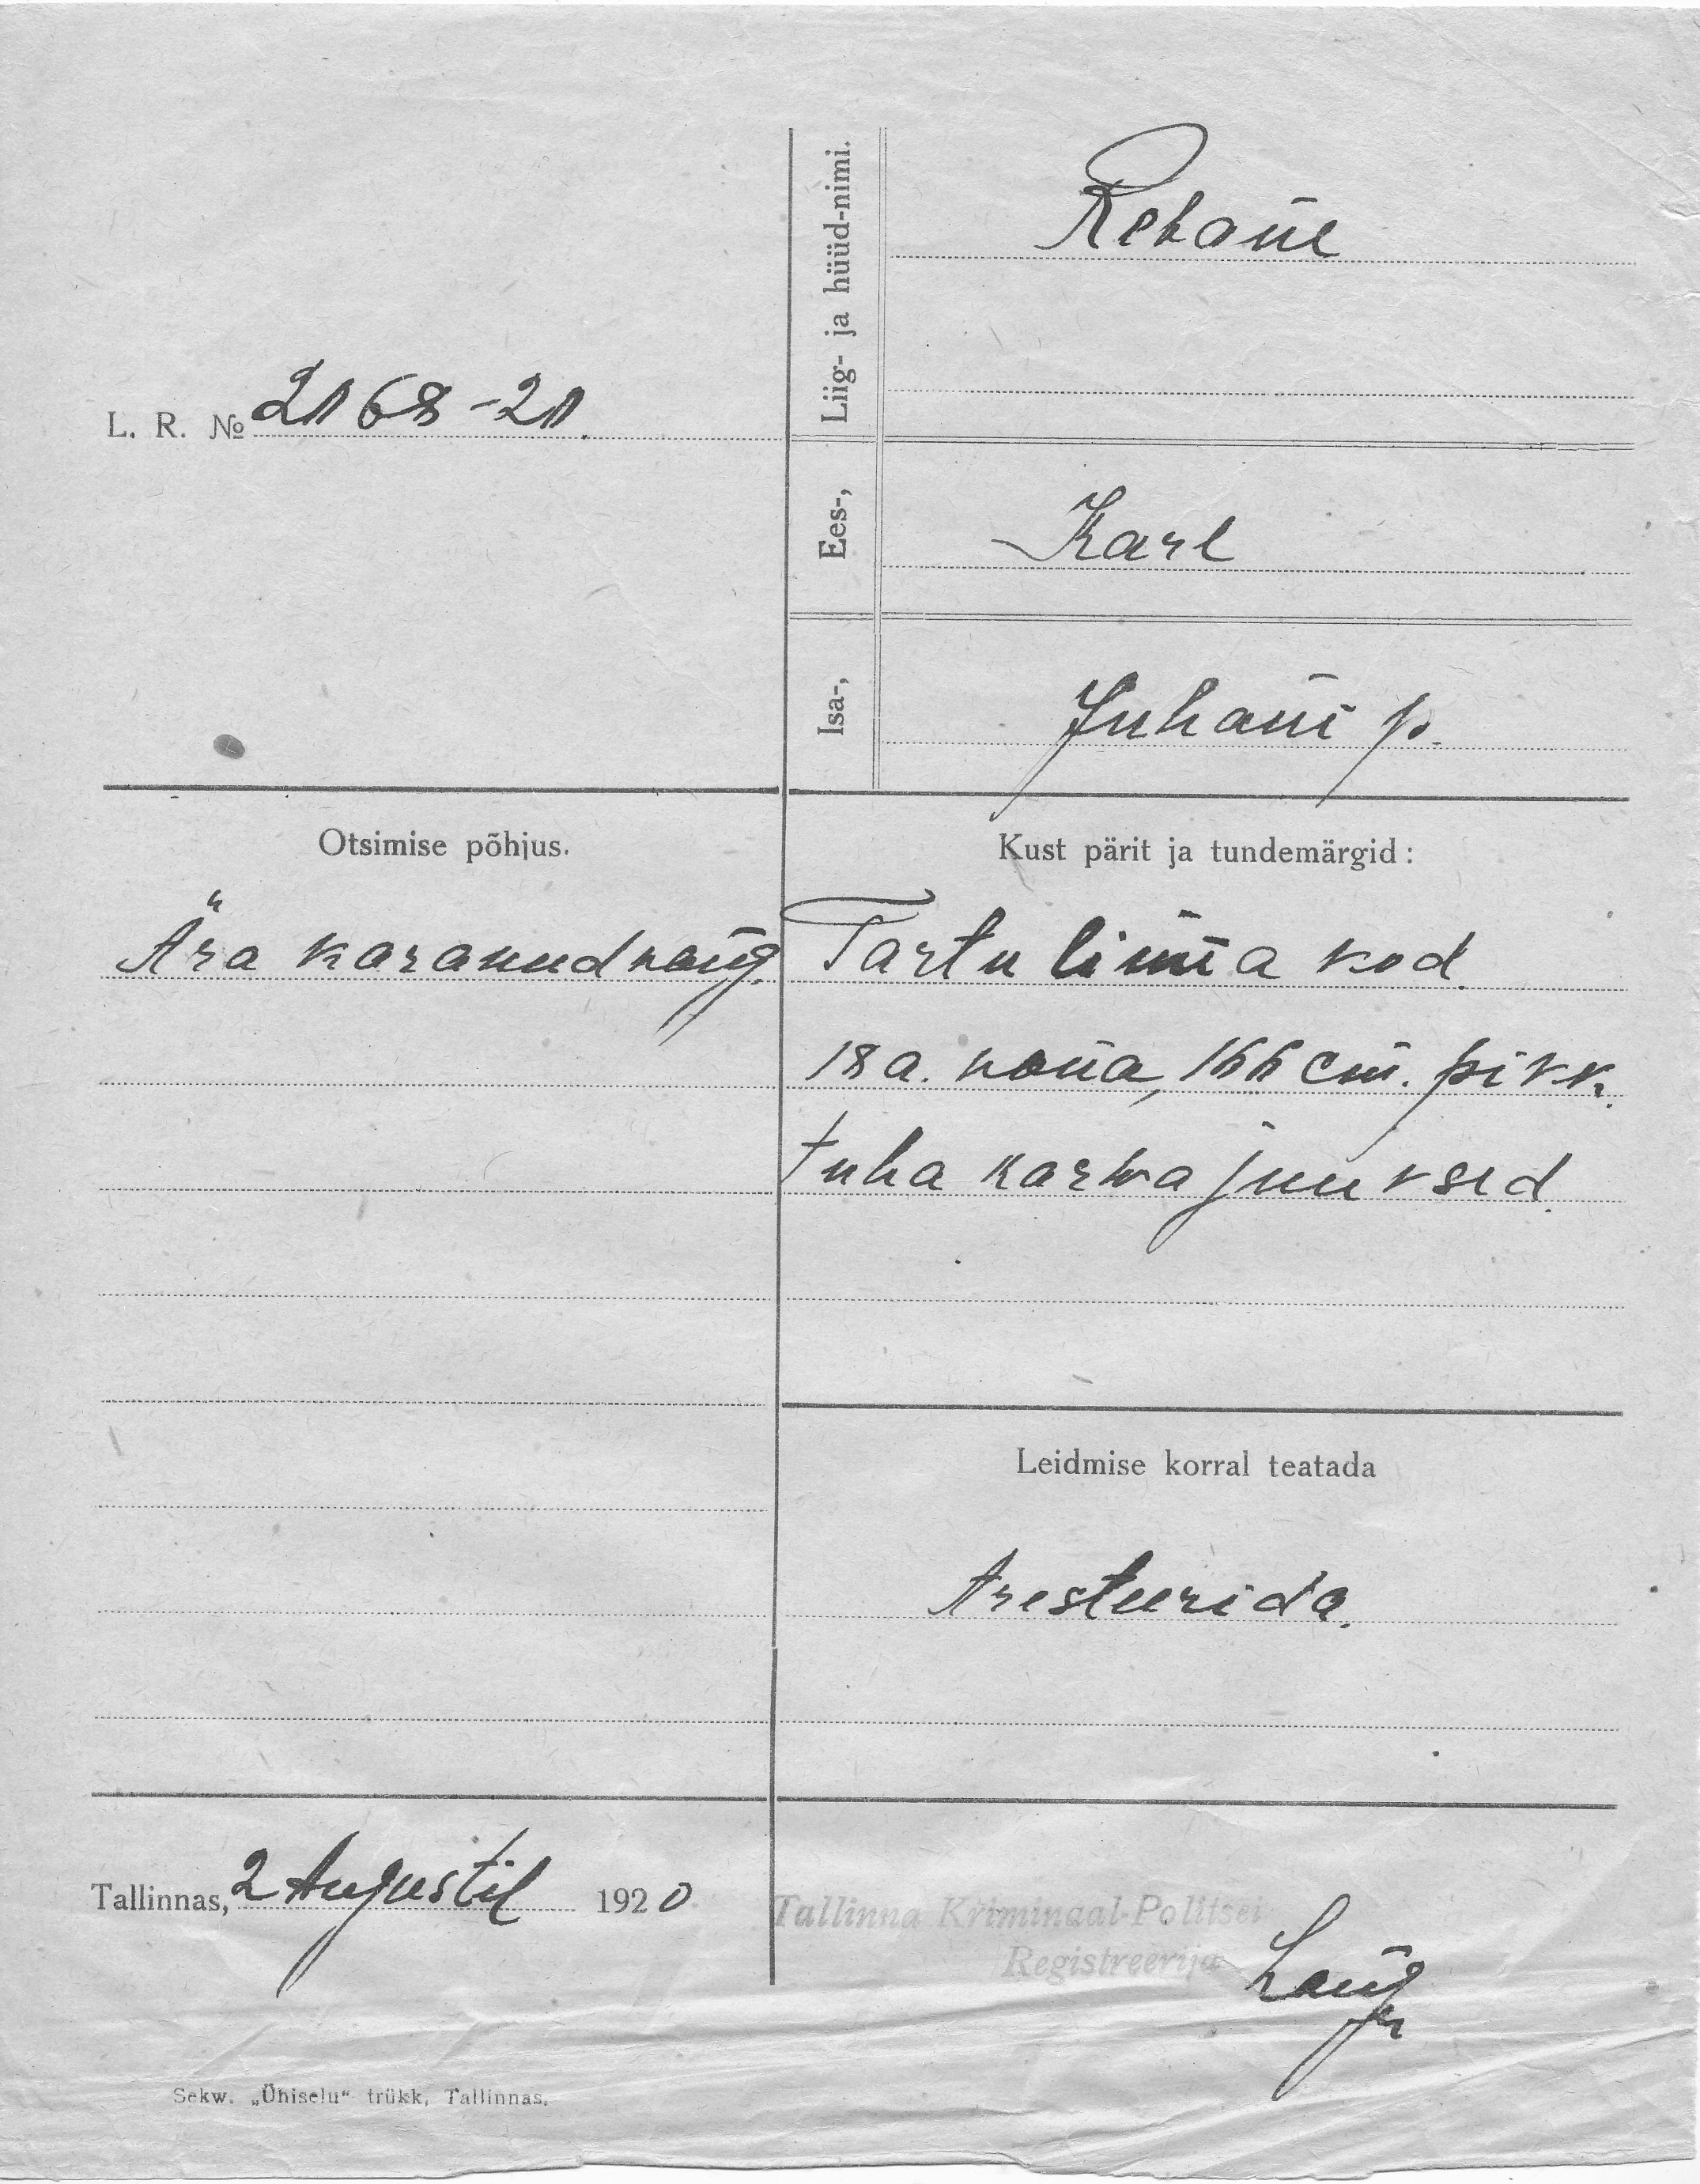 Liig- ja hüüd-nimi.
Rebane
L. R. № 2168-21.
Ees-,
Karl
Isa-,
Juhani p.
Otsimise põhjus.
Ära karanud wang.
Kust pärit ja tundemärgid:
Tartu linna kod.
18 a. wana, 166 cm. pikk.
tuha karwa juuksed.
Leidmise korral teatada
Aresteerida.
Tallinnas, 2 Augustil 1920
Tallinna Kriminaal-Politsei
Registreerija
Sekw. „Ühiselu“ trükk, Tallinnas.